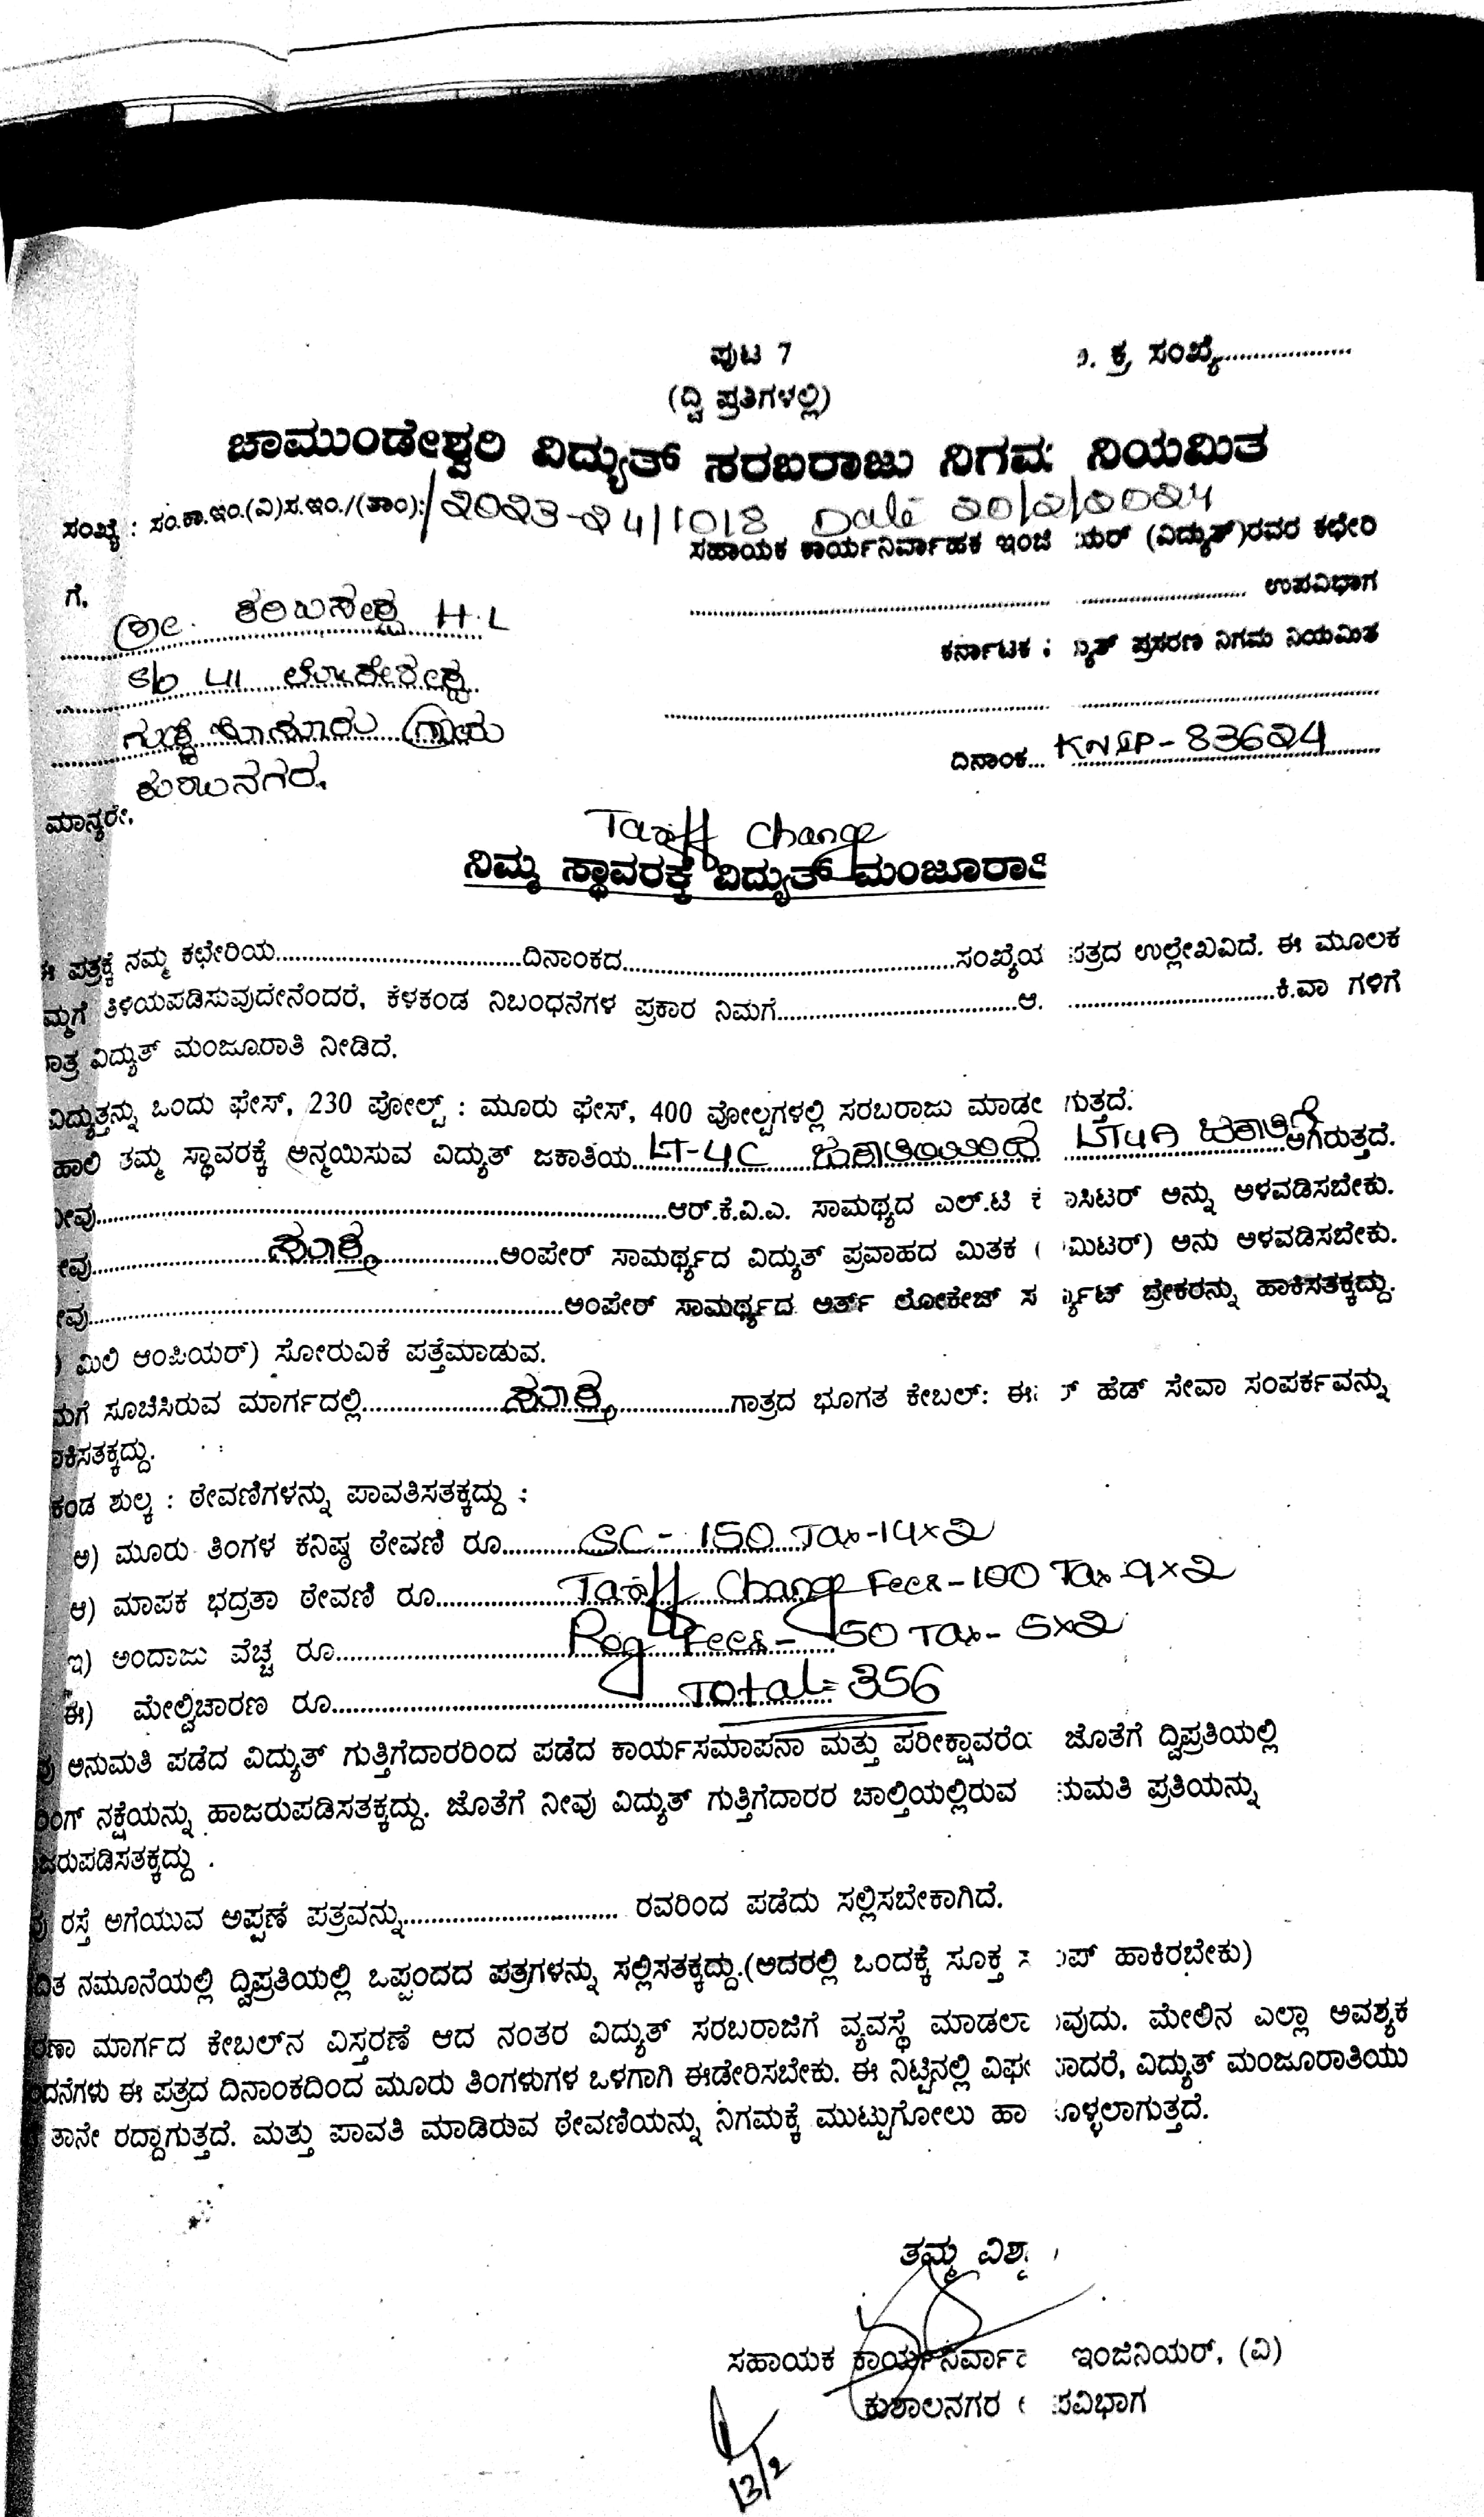 ಪುಟ 7
. ಕ್ರ ಸಂಖ್ಯೆ....................
(ದ್ವಿ ಪ್ರತಿಗಳಲ್ಲಿ)
ಚಾಮುಂಡೇಶ್ವರಿ ವಿದ್ಯುತ್ ಸರಬರಾಜು ನಿಗಮ ನಿಯಮಿತ
ಸಂಖ್ಯೆ : ಸಂ.ಕಾ.ಇಂ.(ವಿ)ಸ.ಇಂ./(ತಾಂ):/2023-24/1018 Date 20/2/2024
ಸಹಾಯಕ ಕಾರ್ಯನಿರ್ವಾಹಕ ಇಂಜಿ ಯರ್ (ವಿದ್ಯುತ್)ರವರ ಕಛೇರಿ
ಗೆ,
.................... ಉಪವಿಭಾಗ
ಶ್ರೀ. H.L
ಕರ್ನಾಟಕ ದ್ಯುತ್ ಪ್ರಸರಣ ನಿಗಮ ನಿಯಮಿತ
S/o
ದಿನಾಂಕ... KNSP-83624
ಮಾನ್ಯರೇ,
Tariff Change
ನಿಮ್ಮ ಸ್ಥಾವರಕ್ಕೆ ವಿದ್ಯುತ್ ಮಂಜೂರಾತಿ
ಈ ಪತ್ರಕ್ಕೆ ನಮ್ಮ ಕಛೇರಿಯ....................ದಿನಾಂಕದ....................ಸಂಖ್ಯೆಯ ಪತ್ರದ ಉಲ್ಲೇಖವಿದೆ. ಈ ಮೂಲಕ
ಮ್ಮಗೆ ತಿಳಿಯಪಡಿಸುವುದೇನೆಂದರೆ, ಕೆಳಕಂಡ ನಿಬಂಧನೆಗಳ ಪ್ರಕಾರ ನಿಮಗೆ....................ಆ. ....................ಕಿ.ವಾ ಗಳಿಗೆ
ಾತ್ರ ವಿದ್ಯುತ್ ಮಂಜೂರಾತಿ ನೀಡಿದೆ.
ವಿದ್ಯುತ್ತನ್ನು ಒಂದು ಫೇಸ್, 230 ವೋಲ್ಟ್ : ಮೂರು ಫೇಸ್, 400 ವೋಲ್ಟಗಳಲ್ಲಿ ಸರಬರಾಜು ಮಾಡಲ ಗುತ್ತದೆ.
ಹಾಲಿ ತಮ್ಮ ಸ್ಥಾವರಕ್ಕೆ ಅನ್ವಯಿಸುವ ವಿದ್ಯುತ್ ಜಕಾತಿಯ...LT-4C ಜಕಾತಿಯಿಂದ LT4A ಜಕಾತಿಗೆ ಆಗಿರುತ್ತದೆ.
ೀವು....................ಆರ್.ಕೆ.ವಿ.ಎ. ಸಾಮಥ್ಯದ ಎಲ್.ಟಿ ಕೆ ಾಸಿಟರ್ ಅನ್ನು ಅಳವಡಿಸಬೇಕು.
ೀವು..........ಸೂಕ್ತ..........ಅಂಪೇರ್ ಸಾಮರ್ಥ್ಯದ ವಿದ್ಯುತ್ ಪ್ರವಾಹದ ಮಿತಕ ( ಮಿಟರ್) ಅನು ಅಳವಡಿಸಬೇಕು.
ೀವು....................ಅಂಪೇರ್ ಸಾಮರ್ಥ್ಯದ ಅರ್ತ್ ಲೋಕೇಜ್ ಸ ರ್ಕ್ಯೂಟ್ ಬ್ರೇಕರನ್ನು ಹಾಕಿಸತಕ್ಕದ್ದು.
) ಮಿಲಿ ಆಂಪಿಯರ್) ಸೋರುವಿಕೆ ಪತ್ತೆಮಾಡುವ.
ಮಗೆ ಸೂಚಿಸಿರುವ ಮಾರ್ಗದಲ್ಲಿ..........ಸೂಕ್ತ..........ಗಾತ್ರದ ಭೂಗತ ಕೇಬಲ್: ಹೆಡ್ ಸೇವಾ ಸಂಪರ್ಕವನ್ನು
ಾಕಿಸತಕ್ಕದ್ದು.
ಕಂಡ ಶುಲ್ಕ : ಠೇವಣಿಗಳನ್ನು ಪಾವತಿಸತಕ್ಕದ್ದು :
ಅ) ಮೂರು ತಿಂಗಳ ಕನಿಷ್ಠ ಠೇವಣಿ ರೂ..........SC- 150 Tax-14×2
ಆ) ಮಾಪಕ ಭದ್ರತಾ ಠೇವಣಿ ರೂ..........Tariff Change Fees-100 Tax-9×2
ಇ) ಅಂದಾಜು ವೆಚ್ಚ ರೂ....................Reg Fees- 50 Tax- 5×2
ಈ) ಮೇಲ್ವಿಚಾರಣ ರೂ....................Total= 356
ವು ಅನುಮತಿ ಪಡೆದ ವಿದ್ಯುತ್ ಗುತ್ತಿಗೆದಾರರಿಂದ ಪಡೆದ ಕಾರ್ಯಸಮಾಪನಾ ಮತ್ತು ಪರೀಕ್ಷಾವರೆಯ ಜೊತೆಗೆ ದ್ವಿಪ್ರತಿಯಲ್ಲಿ
ರಿಂಗ್ ನಕ್ಷೆಯನ್ನು ಹಾಜರುಪಡಿಸತಕ್ಕದ್ದು. ಜೊತೆಗೆ ನೀವು ವಿದ್ಯುತ್ ಗುತ್ತಿಗೆದಾರರ ಚಾಲ್ತಿಯಲ್ಲಿರುವ ನುಮತಿ ಪ್ರತಿಯನ್ನು
ಜರುಪಡಿಸತಕ್ಕದ್ದು .
ವು ರಸ್ತೆ ಅಗೆಯುವ ಅಪ್ಪಣೆ ಪತ್ರವನ್ನು.................... ರವರಿಂದ ಪಡೆದು ಸಲ್ಲಿಸಬೇಕಾಗಿದೆ.
ದಿತ ನಮೂನೆಯಲ್ಲಿ ದ್ವಿಪ್ರತಿಯಲ್ಲಿ ಒಪ್ಪಂದದ ಪತ್ರಗಳನ್ನು ಸಲ್ಲಿಸತಕ್ಕದ್ದು.(ಅದರಲ್ಲಿ ಒಂದಕ್ಕೆ ಸೂಕ್ತ ಸ ಾಂಪ್ ಹಾಕಿರಬೇಕು)
ರಣಾ ಮಾರ್ಗದ ಕೇಬಲ್‌ನ ವಿಸ್ತರಣೆ ಆದ ನಂತರ ವಿದ್ಯುತ್ ಸರಬರಾಜಿಗೆ ವ್ಯವಸ್ಥೆ ಮಾಡಲಾ ುವುದು. ಮೇಲಿನ ಎಲ್ಲಾ ಅವಶ್ಯಕ
ಂದನೆಗಳು ಈ ಪತ್ರದ ದಿನಾಂಕದಿಂದ ಮೂರು ತಿಂಗಳುಗಳ ಒಳಗಾಗಿ ಈಡೇರಿಸಬೇಕು. ಈ ನಿಟ್ಟಿನಲ್ಲಿ ವಿಫಲ ಾದರೆ, ವಿದ್ಯುತ್ ಮಂಜೂರಾತಿಯು
ತಾನೇ ರದ್ದಾಗುತ್ತದೆ. ಮತ್ತು ಪಾವತಿ ಮಾಡಿರುವ ಠೇವಣಿಯನ್ನು ನಿಗಮಕ್ಕೆ ಮುಟ್ಟುಗೋಲು ಹಾ ೊಳ್ಳಲಾಗುತ್ತದೆ.
ತಮ್ಮ ವಿಶ್ವ
ಸಹಾಯಕ ಕಾರ್ಯನಿರ್ವಾಹ ಇಂಜಿನಿಯರ್, (ವಿ)
ಕುಶಾಲನಗರ ಪವಿಭಾಗ
13/2